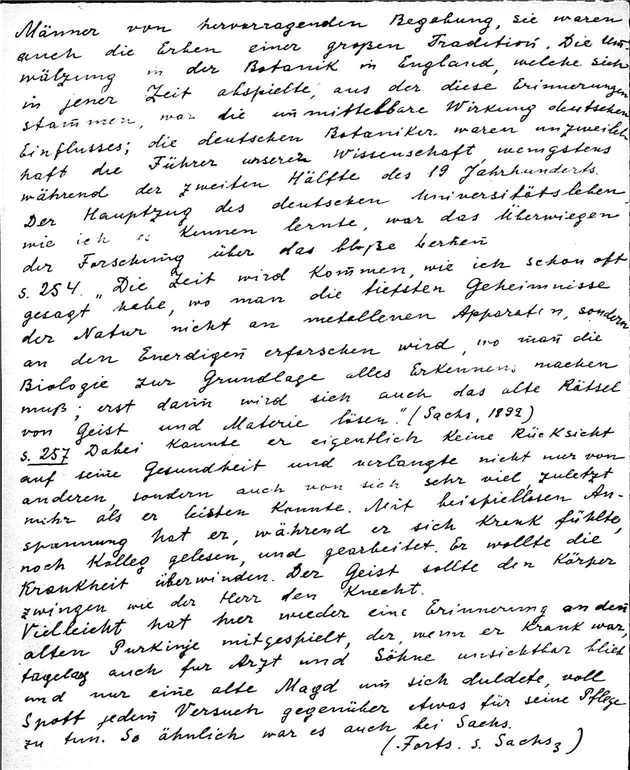 Männer von hervorragenden Begabung, sie waren
auch die Erben einer großen Tradition. Die Um-
wälzung in der Botanik in England, welche sich
in jener Zeit abspielte, aus der diese Erinnerungen
stammen, war die unmittelbare Wirkung deutschen
Einflusses; die deutschen Botaniker waren unzweifel-
haft die Führer unserer Wissenschaft wenigstens
während der zweiten Hälfte des 19 Jahrhunderts.
Der Hauptzug des deutschen Universitätsleben,
wie ich es kennen lernte, war das Überwiegen
der Forschung über das bloße
s. 254. „Die Zeit wird kommen, wie ich schon oft
gesagt habe, wo man die tiefsten Geheimnisse
der Natur nicht an metallenen Apparaten, sondern
an den erforschen wird, wo man die
Biologie zur Grundlage alles Erkennens machen
muß; erst dann wird sich auch das alte Rätsel
von Geist und Materie lösen." (Sachs, 1892)
s. 257 Dabei kannte er eigentlich keine Rücksicht
auf seine Gesundheit und verlangte nicht nur von
anderen, sondern auch von sich sehr viel, zuletzt
mehr als er leisten konnte. Mit beispiellosen An-
spannung hat er, während er sich krank fühlte,
noch Kolleg gelesen, und gearbeitet. Er wollte die
Krankheit überwinden. Der Geist sollte den Körper
zwingen wie der Herr den Knecht.
Vielleicht hat hier wieder eine Erinnerung an den
alten Purkinje mitgespielt, der, wenn er krank war,
tagelang auch für Arzt und Söhne unsichtbar blieb
und nur eine alte Magd um sich duldete, voll
Spott jedem Versuch gegenüber etwas für seine Pflege
zu tun. So ähnlich war es auch bei Sachs.
(Forts. s. Sachs 3)